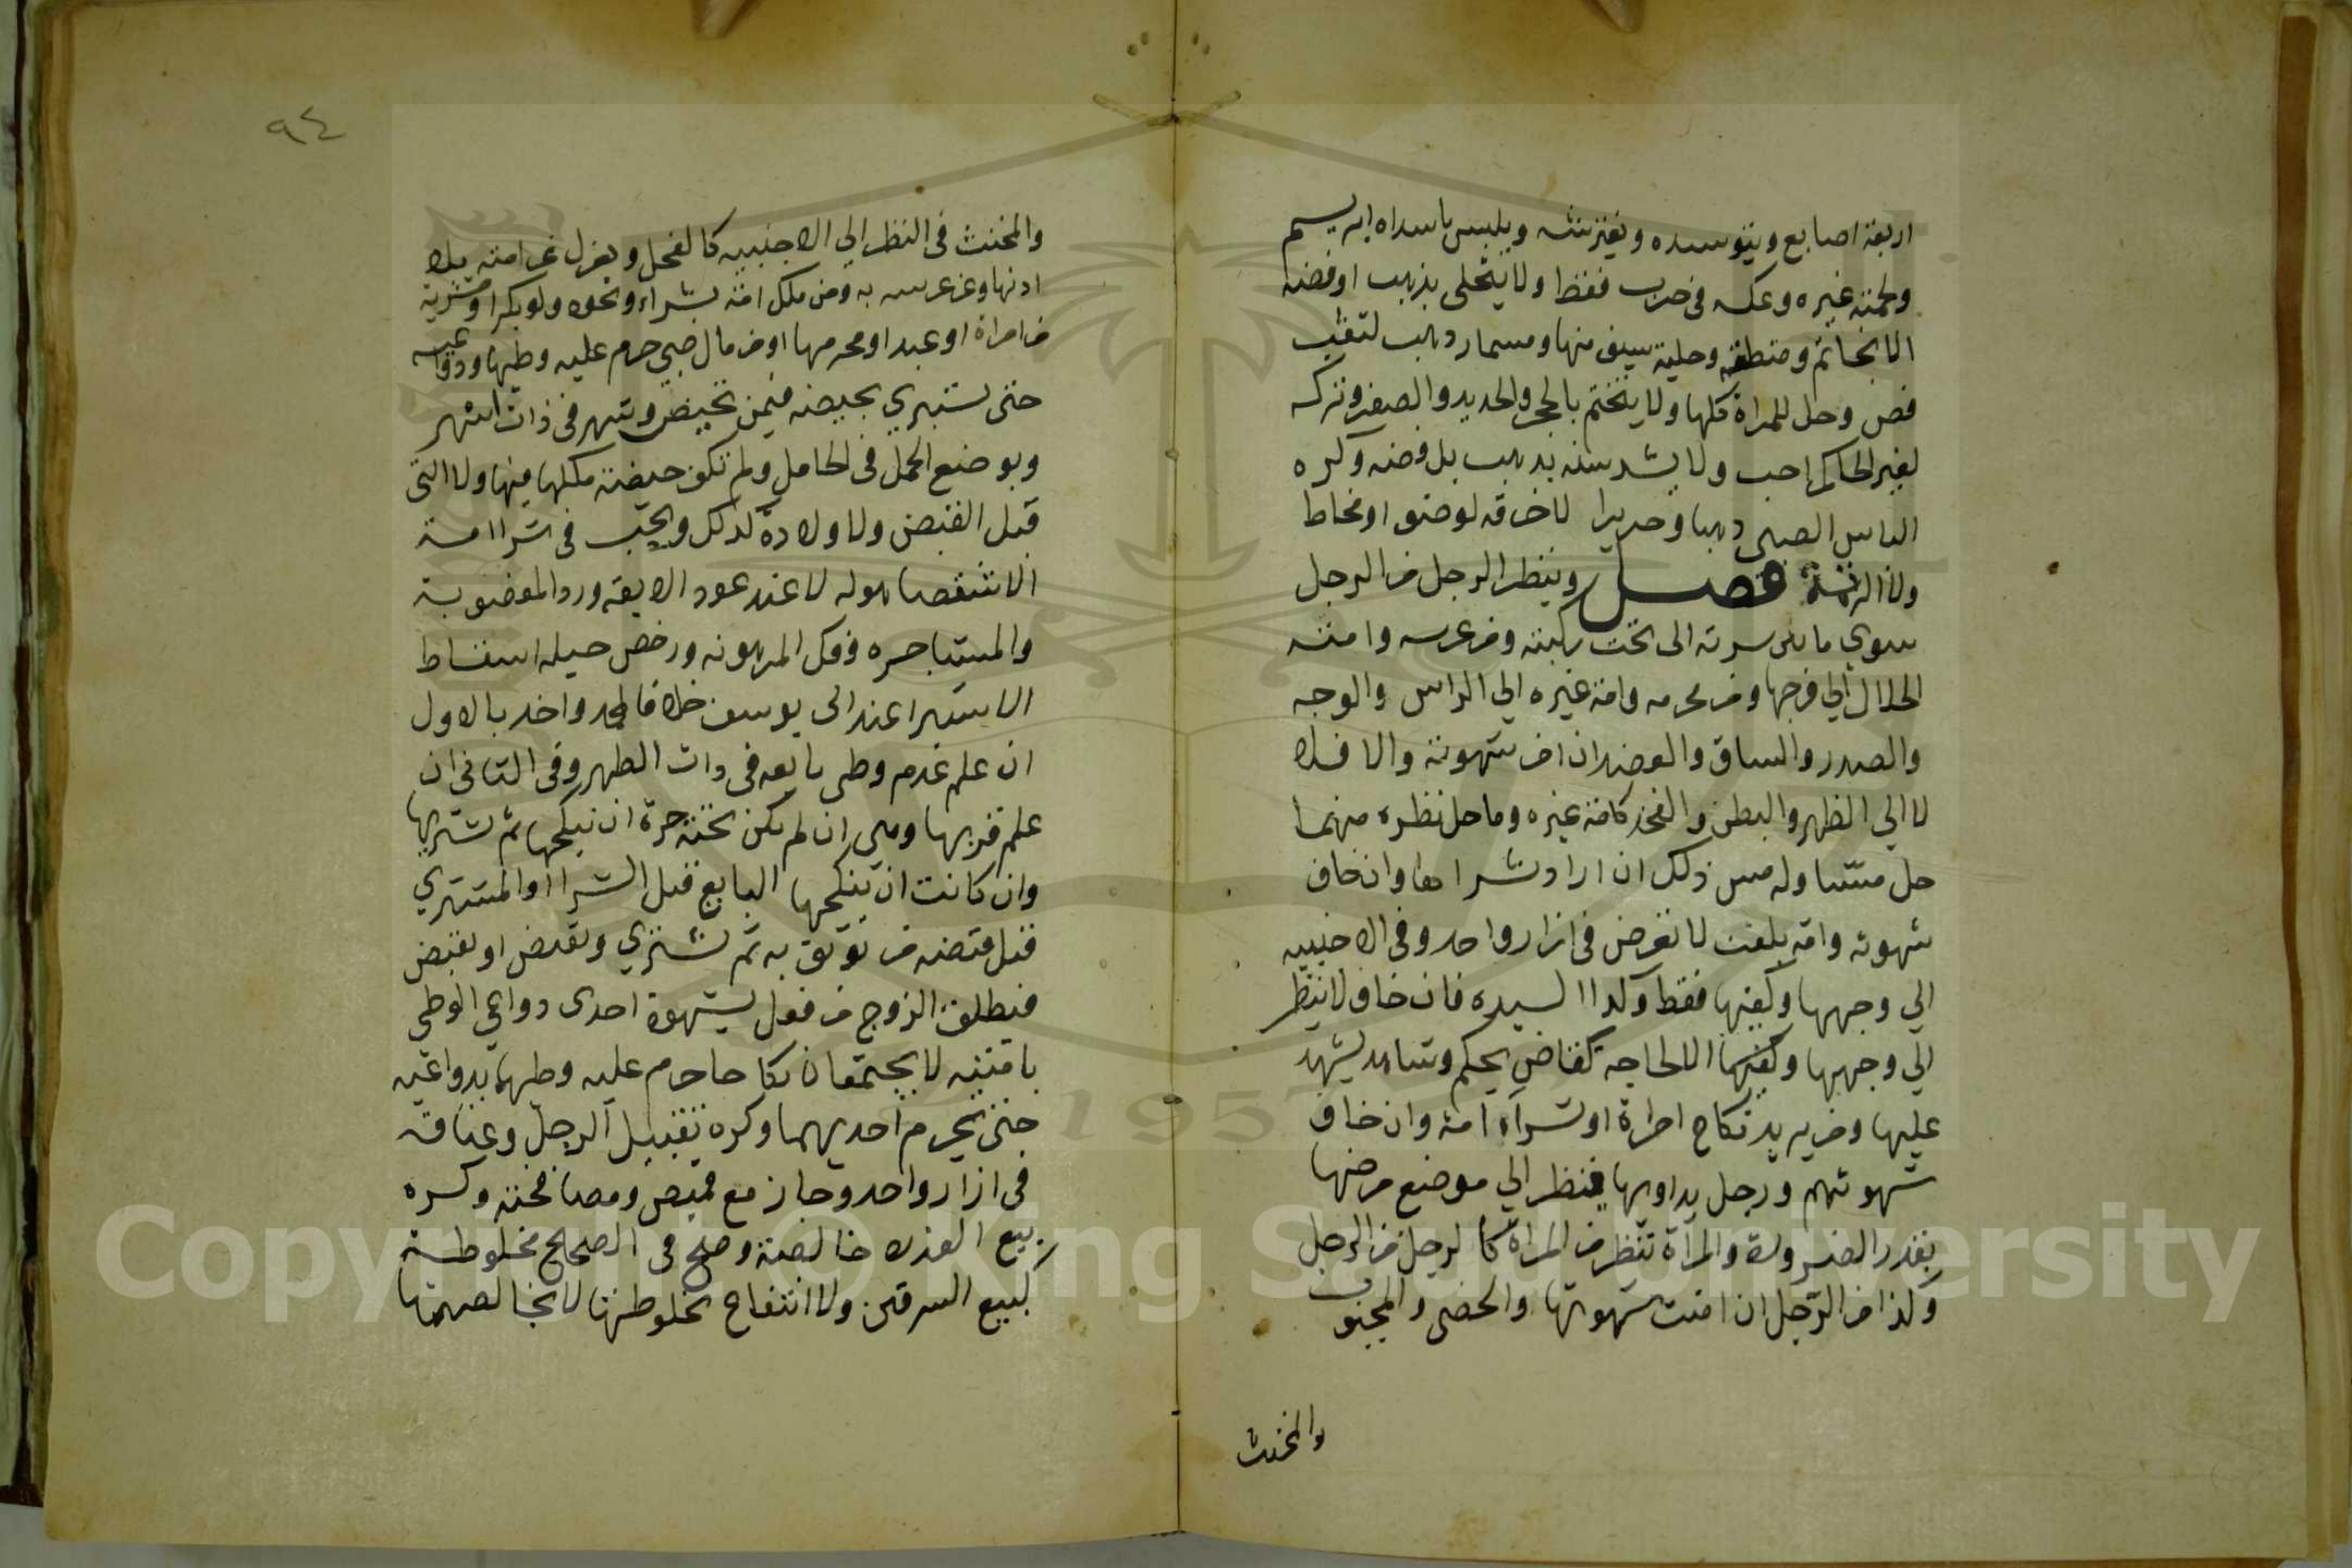 اربعة اصابع ويتوسده ويفترشه ويلبس ما سداه ابريسم
ولحمته غيره وعكسه في حرب فقط ولا يتحلى بذهب او فضة
الا بخاتم ومنطقة وحلية سيف منها ومسمار ذهب لثقب
فص وحل للمراة كلها ولا يتختم بالحجر والحديد والصفر وتركه
لغير الحاكم احب ولا يشد سنه بذهب بل فضة وكره
الباس الصبي ذهبا وحريرا لا خرقة لوضو او مخاط
ولا الرتمة فصل وينظر الرجل من الرجل
سوي ما بين سرته الى تحت ركبته ومن عرسه وامته
الحلال الي فرجها ومن محرمه وامة غيره الي الراس والوجه
والصدر والساق والعضد ان امن شهوته والا فلا
لا الي الظهر والبطن والفخذ كامة غيره وما حل نظره منهما
حل مسا وله مس ذلك ان اراد شراها وان خاف
شهوته وامة بلغت لا تعرض في ازار واحد وفي الاجنبيه
الي وجهها وكفيها فقط وكذا السيده فان خاف لا ينظر
الي وجهها وكفيها الا لحاجة كقاض يحكم وشاهد يشهد
عليها ومن يريد نكاح امراة او شراء امة وان خاف
شهوتهم ورجل يداويها فينظر الي موضع مرضها
بقدر الضرورة والمرأة تنظر من المراة كالرجل من الرجل
وكذا من الرجل ان امنت شهوتها والخصي والمجبوب
والمخنث
٩٤
والمخنث في النظر الي الاجنبيه كالفحل ويعزل عن امته بلا
اذنها وعن عرسه به ومن ملك امة بشراء ونحوه ولو بكرا او مشرية
من امراة او عبد او محرمها او من مال صبي حرم عليه وطيها ودواعيه
حتى يستبري بحيضة فيمن تحيض وبشهر في ذات اشهر
وبوضع الحمل في الحامل ولم تكف حيضة ملكها فيها ولا التى
قبل القبض ولا ولادة كذلك ويجب في شرا امة
الا شقصا هو له لا عند عود الابقة ورد المغصوبة
والمستاجره وفك المرهونه ورخص حيلة اسقاط
الاستبرا عند ابى يوسف خلافا لمحمد واخذ بالاول
ان علم عدم وطي بايعه في ذات الطهر وفى الثاني ان
علم قربها وهي ان لم يكن تحته حرة ان ينكحها ثم يشتريها
وان كانت ان ينكحها البايع قبل الشرا او المشتري
قبل قبضه من يوثق به ثم يشتري ويقبض او يقبض
فيطلق الزوج من فعل بشهوة احدى دواعي الوطي
بامتيه لا يجتمعان نكاحا حرم عليه وطيها بدواعيه
حتى يحرم احديهما وكره تقبيل الرجل وعناقه
في ازار واحد وجاز مع قميص ومصافحته وكره
بيع العذرة خالصة وصح في الصحيح مخلوطة
كبيع السرقين والانتفاع بمخلوطتها لا بخالصتها
Copyright © King Saud University
1957